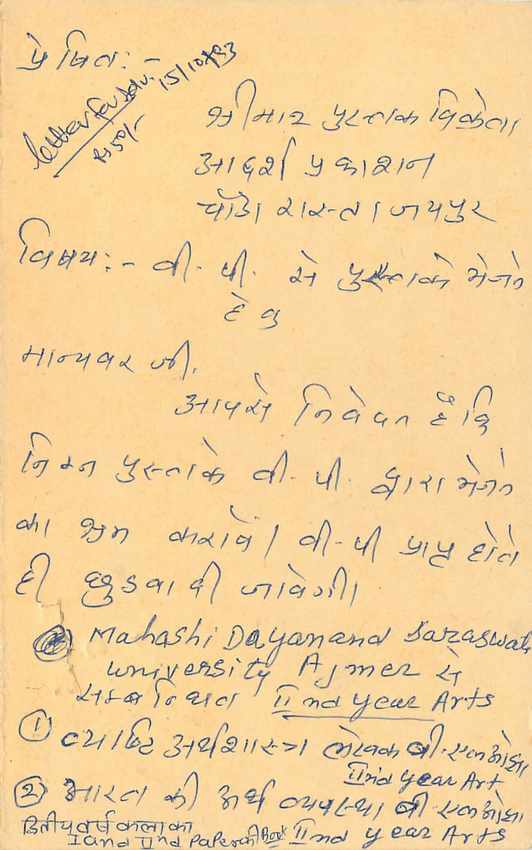 प्रेषित:-
letter for adv. 15/10/93
Rs 5/-
श्रीमान पुस्तक विक्रेता
आदर्श प्रकाशन
चौड़ा रास्ता जयपुर
विषय:- वी. पी. से पुस्तकें भेजने
हेतु
मान्यवर जी,
आपसे निवेदन है कि
निम्न पुस्तकें वी. पी. द्वारा भेजने
का श्रम करावें। वी-पी प्राप्त होते
ही छुड़वा दी जावेगी।
Mahashi Dayanand Saraswati
University Ajmer से
सम्बन्धित IInd year Arts
① व्यष्टि अर्थशास्त्र लेखक वी.एल ओझा
IInd year Art
② भारत की अर्थ व्यवस्था वी.एल ओझा
द्वितीय वर्ष कला का
I and IInd Paper की Book IInd year Arts